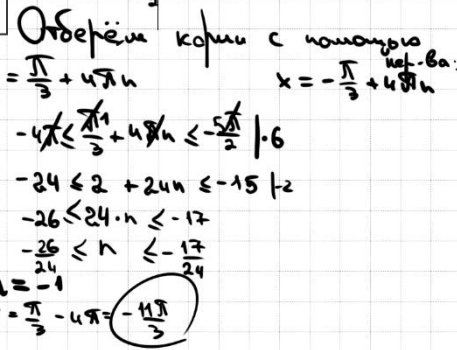 Отберём корни с помощью
нер-ва:
= π/3 + 4πn x = -π/3 + 4πn
-4π ≤ π/3 + 4πn ≤ -5π/2 |·6
-24 ≤ 2 + 24n ≤ -15 |-2
-26 ≤ 24·n ≤ -17
-26/24 ≤ n ≤ -17/24
n = -1
= π/3 - 4π = -11π/3